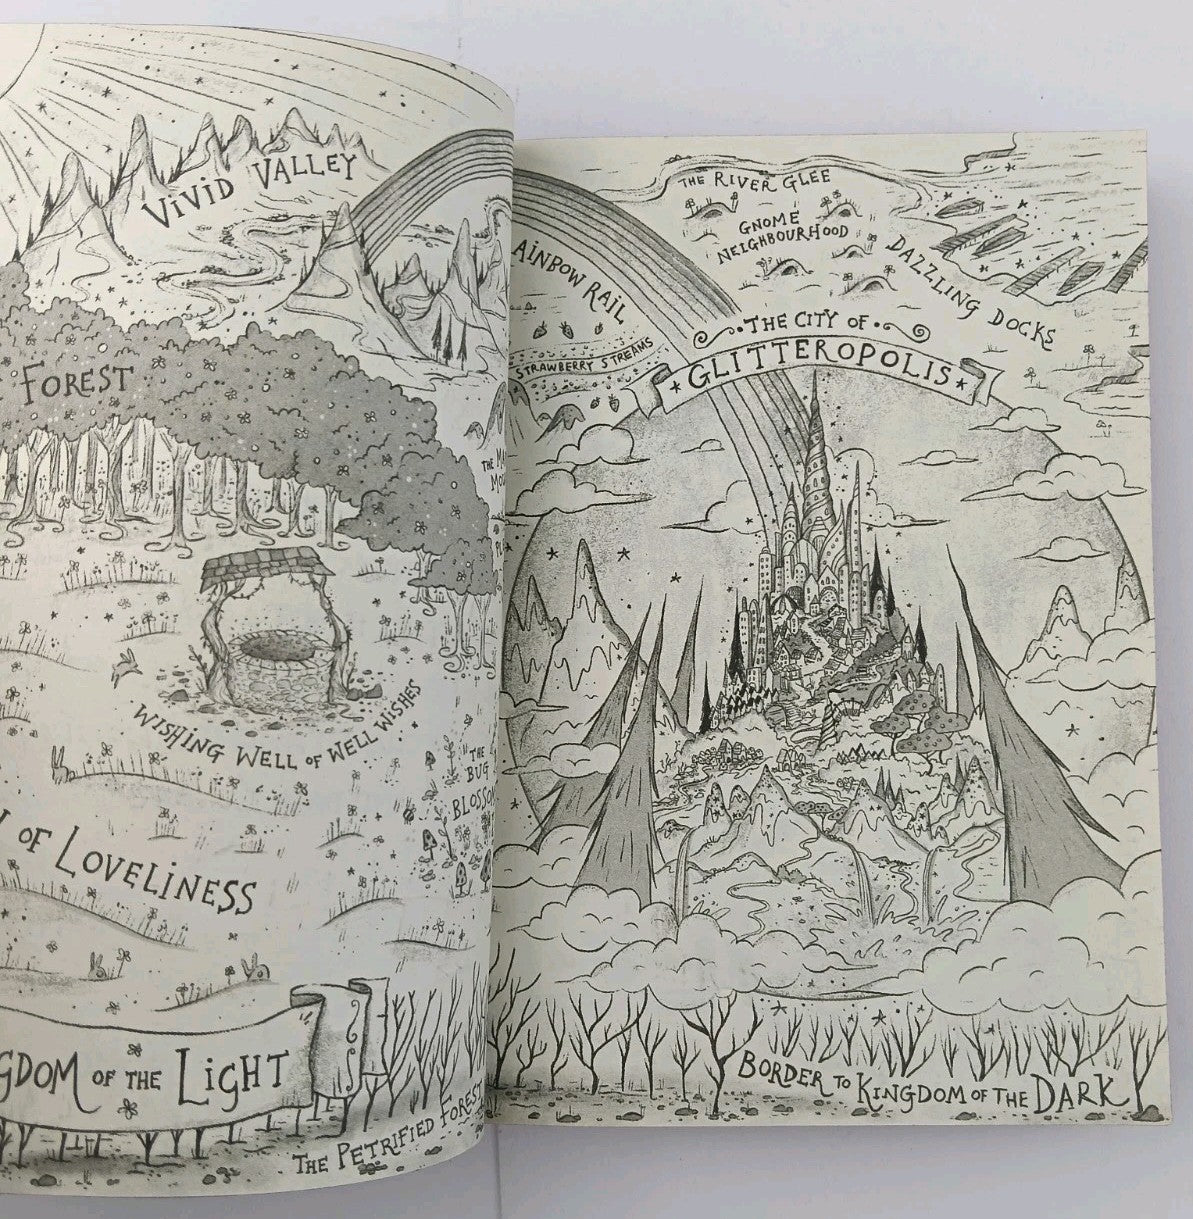 VIVID VALLEY
FOREST
WISHING WELL OF WELL WISHES
THE
BUG
OF LOVELINESS
OF THE LIGHT
THE PETRIFIED FOREST
THE RIVER GLEE
GNOME
NEIGHBOURHOOD
DAZZLING DOCKS
RAIL
STRAWBERRY STREAMS
THE CITY OF
GLITTEROPOLIS
BORDER TO KINGDOM OF THE DARK